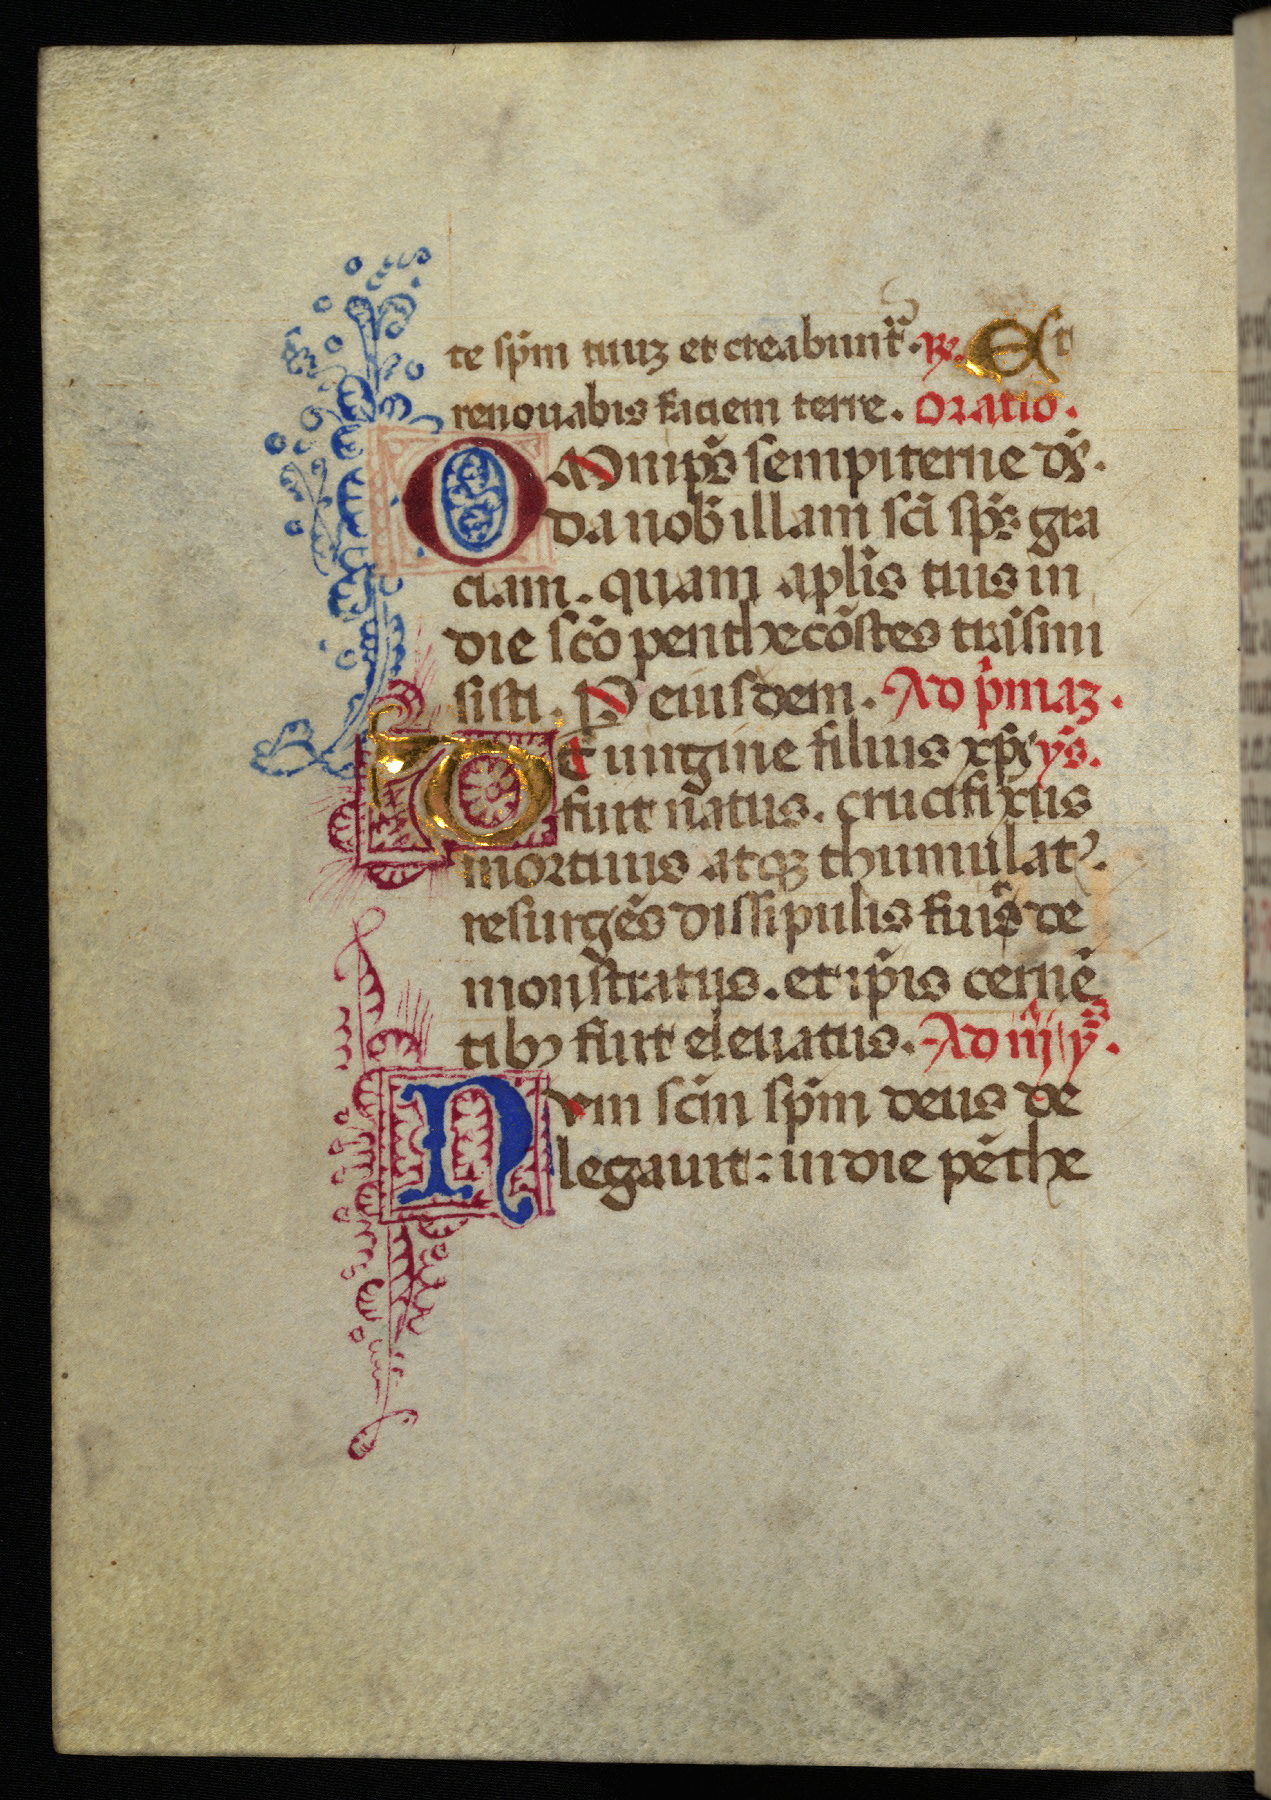 te sp̃m tuuȝ et creabunt᷑. ℟. Et
renouabis faciem terre. Oratio.
OMnip̃s sempiterne d̃s.
da nob̃ illam sc̃i sp̃s gra
ciam. quam ap̃lis tuis in
die sc̃o penthecõstes trãsmi
sisti. P eiusdem. Ad p̃maȝ.
DE uirgine filius xp̃i yũs.
fuit natus. crucifixus
mortuus atqȝ thumulat᷑.
resurgẽs dissipulis fuit de
monstratus. et ip̃is cernẽ
tibꝰ fuit eleuatus. Ad iij yũs.
Nem sc̃m sp̃m deus de
legauit: in die pẽthe